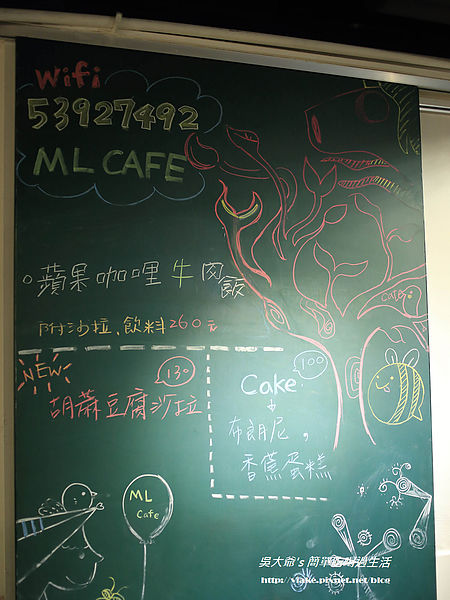 Wifi
53927492
ML CAFE
蘋果咖哩牛肉飯
附沙拉、飲料260元
NEW
130
胡蔴豆腐沙拉
100
Cake
布朗尼，
香蕉蛋糕
Cafe
ML
Cafe
吳大爺's 簡單過生活
http://vlake.pixnet.net/blog